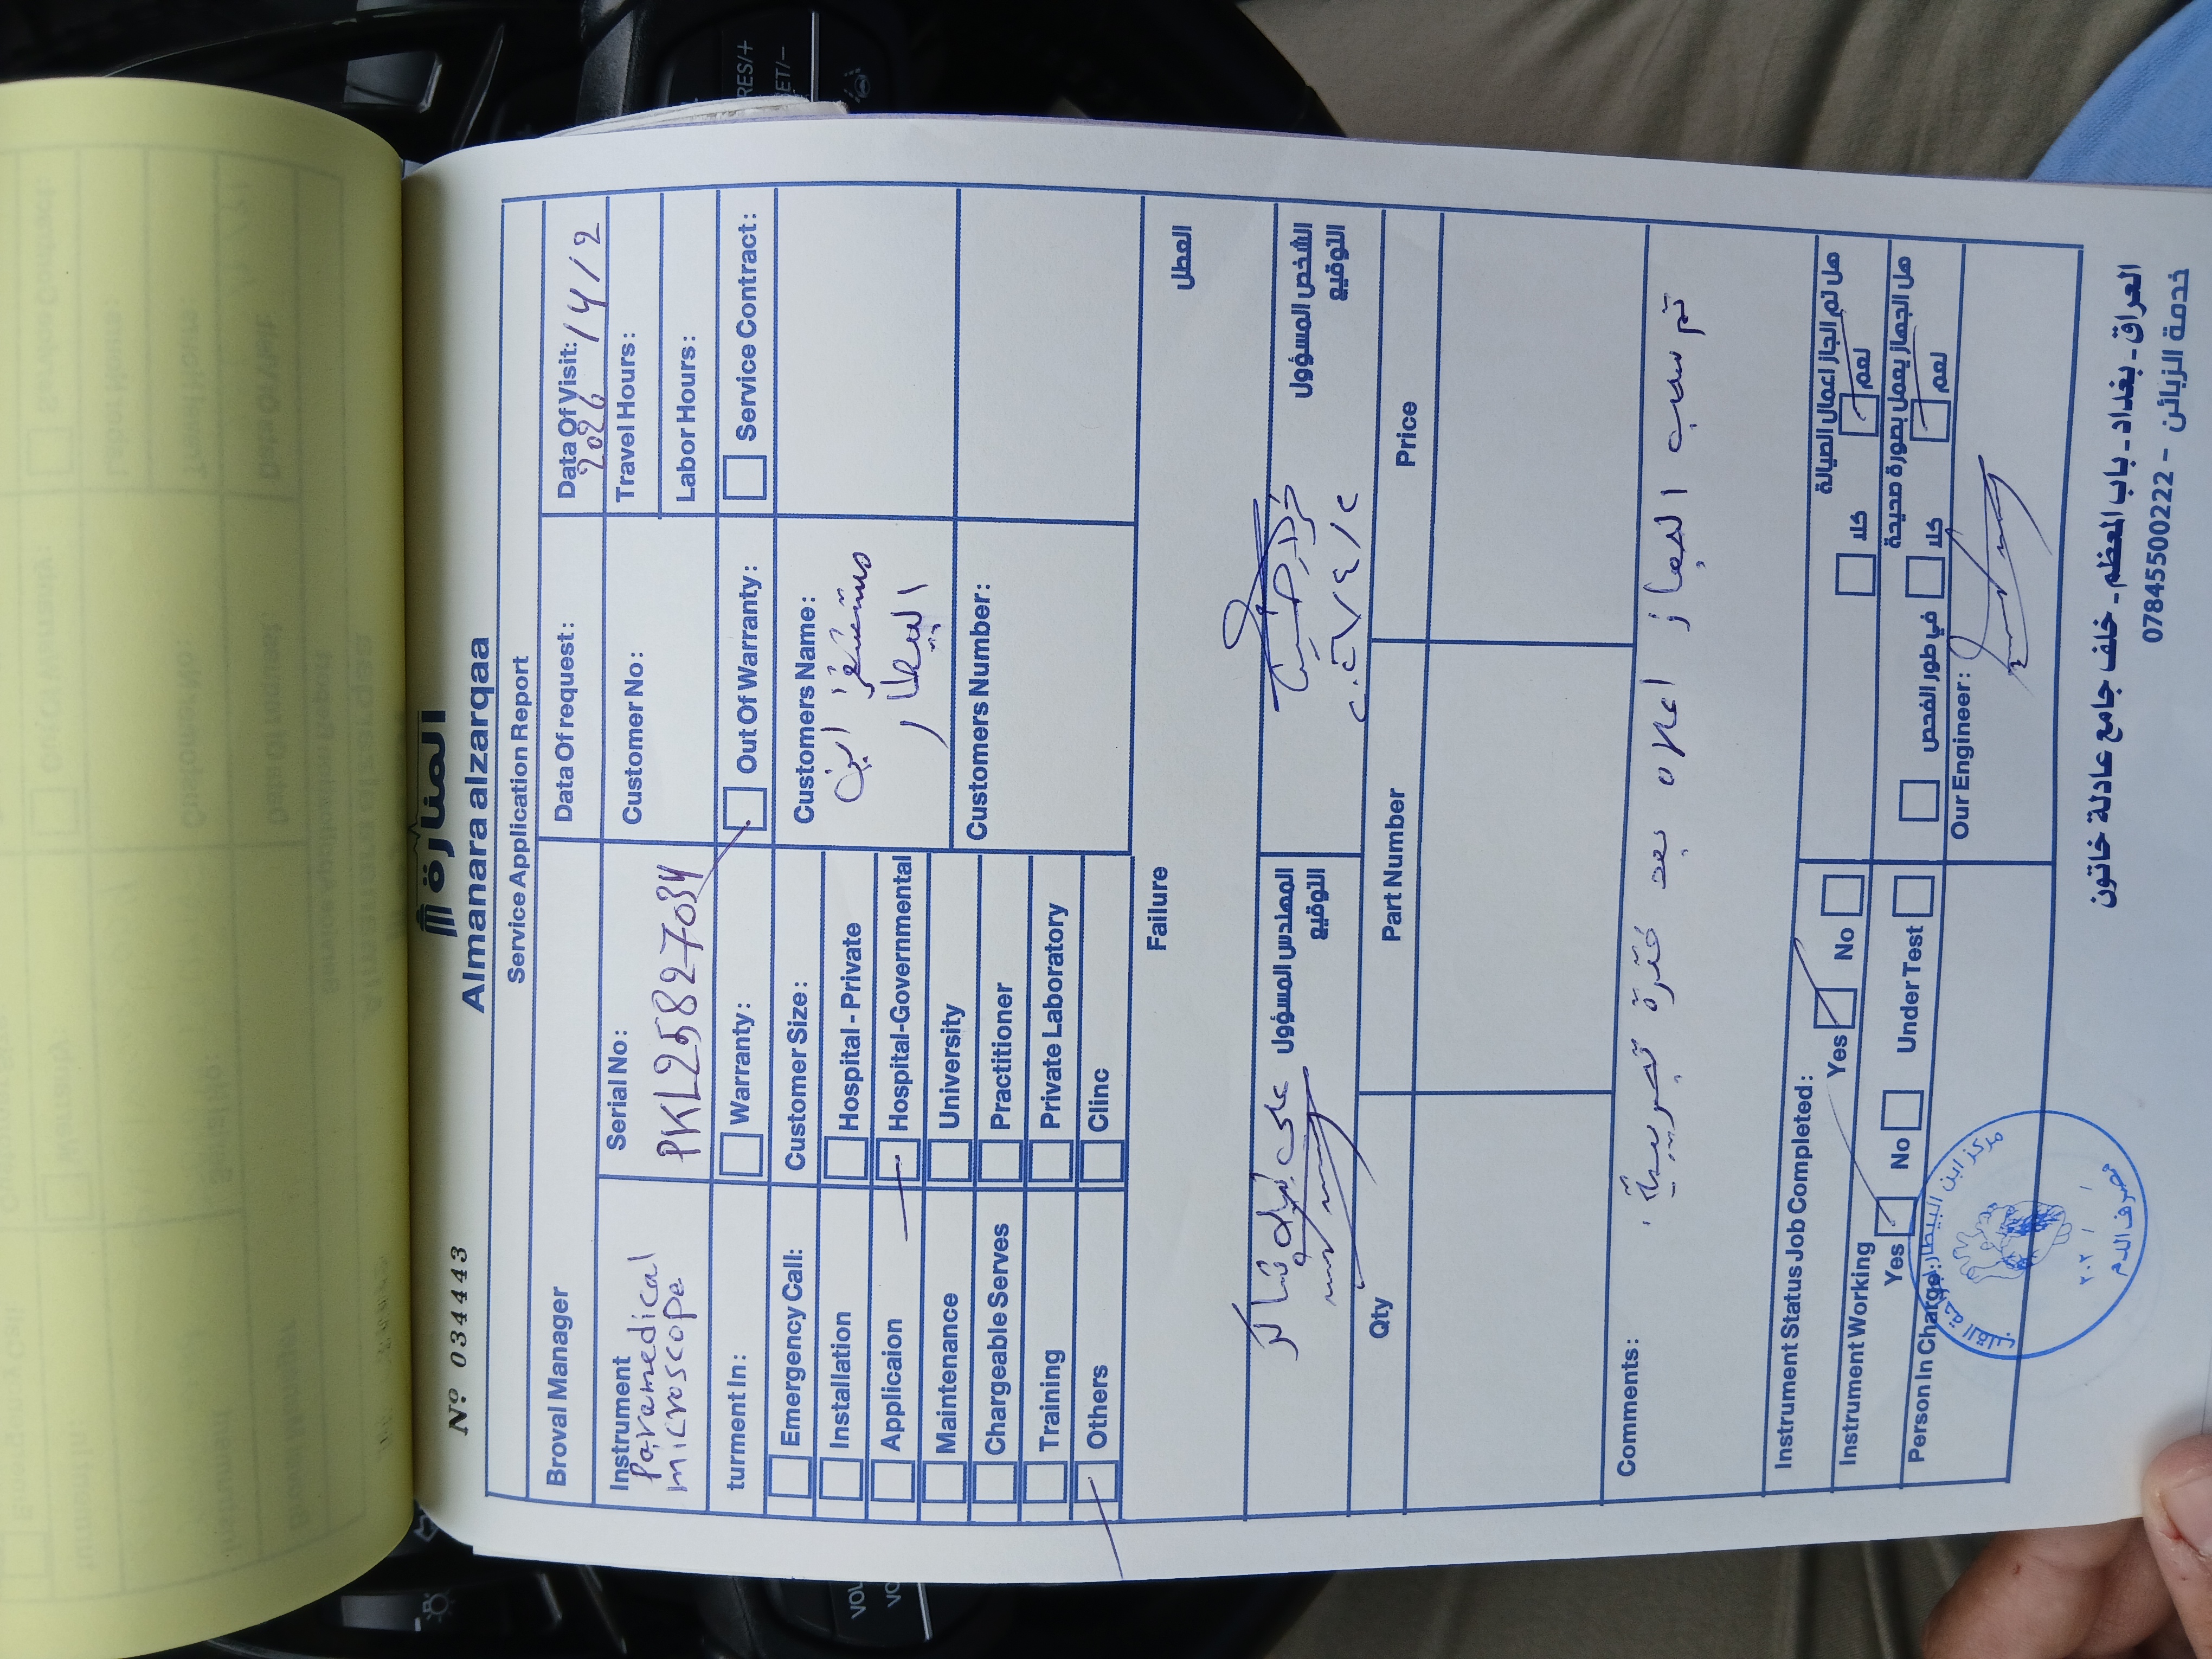 المنارة
Nº 034443
Almanara alzarqaa
Service Application Report
Broval Manager
Data Of request:
Data Of Visit:
2026 / 4 / 2
Instrument
Paramedical
microscope
Serial No:
PKL25827034
Customer No:
Travel Hours:
Labor Hours:
turment In:
Warranty:
Out Of Warranty:
Service Contract:
Emergency Call:
Installation
Applicaion
Maintenance
Chargeable Serves
Training
Others
Customer Size:
Hospital - Private
Hospital-Governmental
University
Practitioner
Private Laboratory
Clinc
Customers Name:
مستشفى ابن
البيطار
Customers Number:
Failure
العطل
المهندس المسؤول
التوقيع
الشخص المسؤول
التوقيع
Qty
Part Number
Price
Comments:
تم سحب الجهاز اعلاه بعد فترة تجريبية
Instrument Status Job Completed:
Yes
No
هل تم انجاز اعمال الصيانة
نعم
كلا
Instrument Working
Yes
No
Under Test
هل الجهاز يعمل بصورة صحيحة
نعم
كلا
في طور الفحص
Person In Charge:
Our Engineer:
مركز ابن البيطار لجراحة القلب
مصرف الدم
٢٠٢ / /
العراق - بغداد - باب المعظم - خلف جامع عادلة خاتون
خدمة الزبائن - 07845500222
RES/+
SET/-
VOL